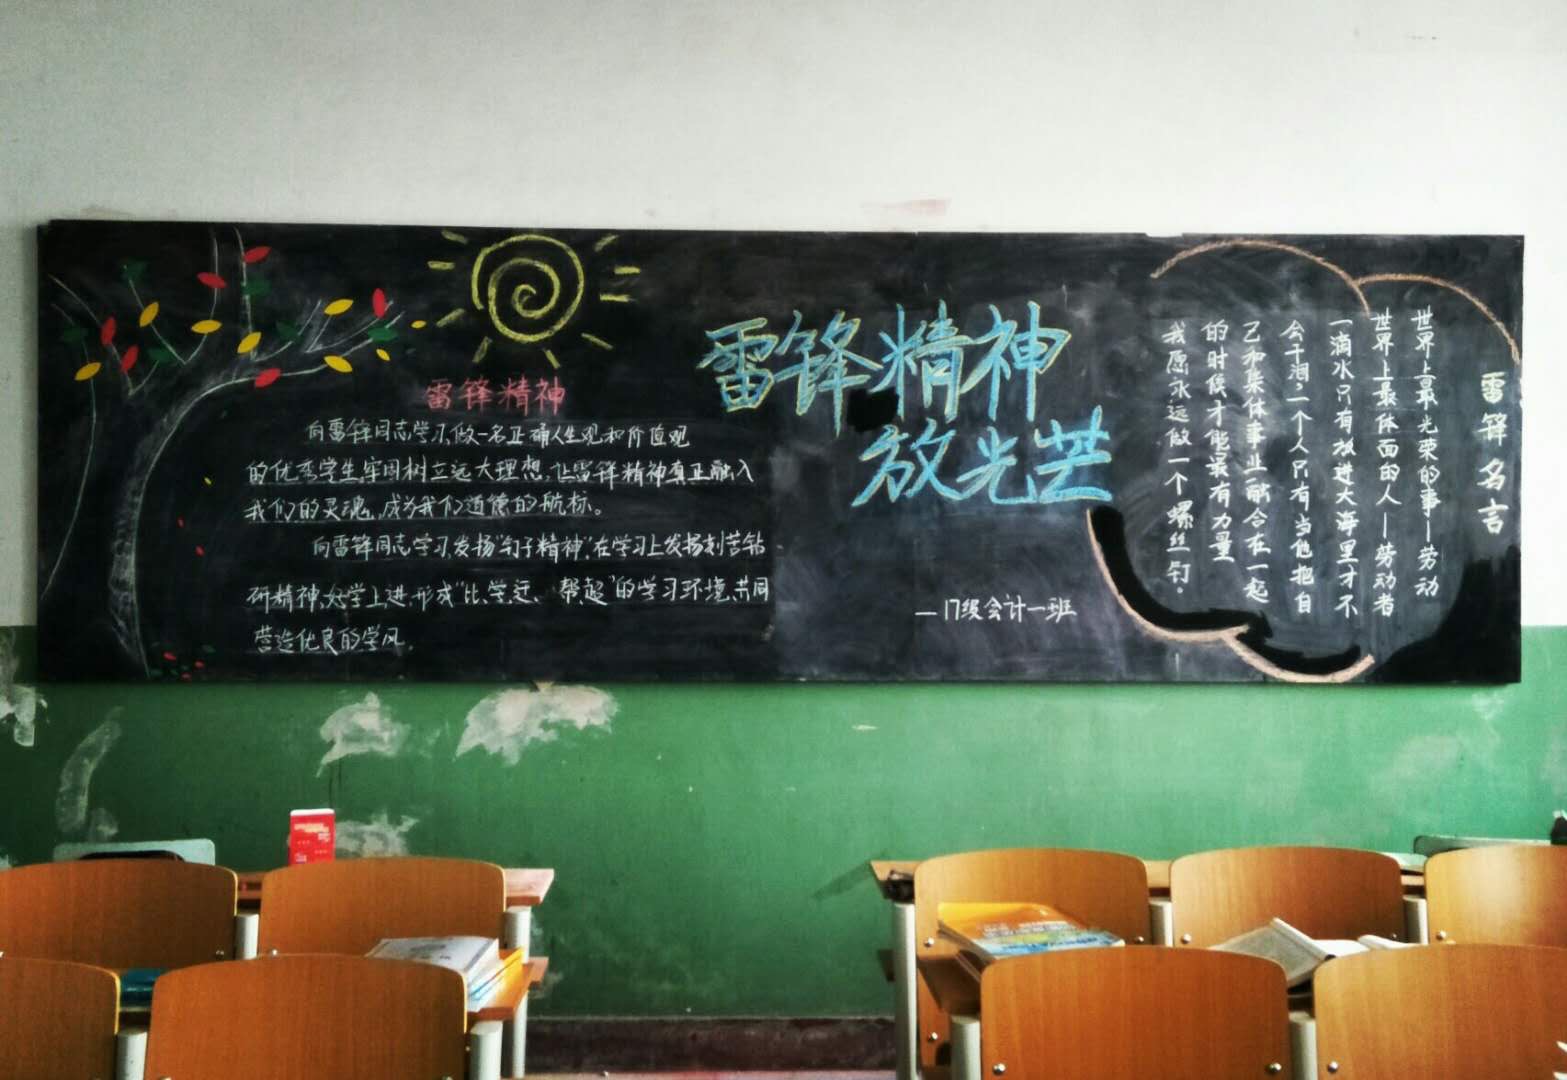 雷锋精神
向雷锋同志学习,做一名正确人生观和价值观
的优秀学生,牢固树立远大理想,让雷锋精神真正融入
我们的灵魂,成为我们道德的航标。
向雷锋同志学习,发扬"钉子精神",在学习上发扬刻苦钻
研精神,好学上进,形成"比、学、赶、帮、超"的学习环境,共同
营造优良的学风.
雷锋精神
放光芒
—17级会计一班
雷锋名言
世界上最光荣的事—劳动
世界上最体面的人—劳动者
一滴水只有放进大海里才不
会干涸,一个人只有当他把自
己和集体事业融合在一起
的时候才能最有力量
我愿永远做一个螺丝钉。